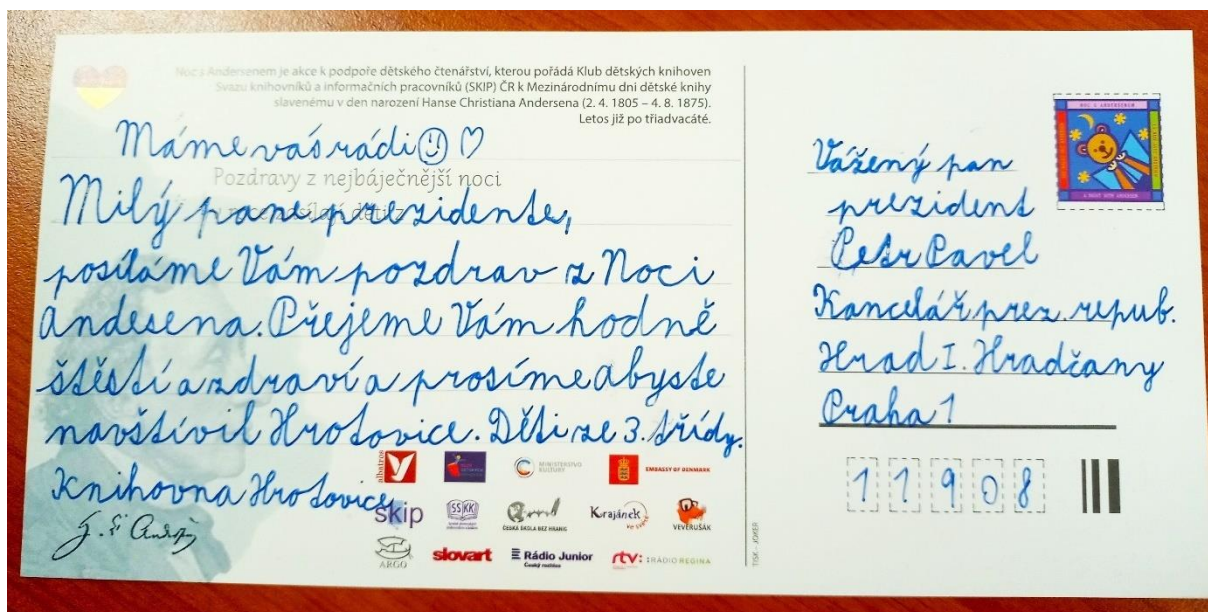 Noc s Andersenem je akce k podpoře dětského čtenářství, kterou pořádá Klub dětských knihoven
Svazu knihovníků a informačních pracovníků (SKIP) ČR k Mezinárodnímu dni dětské knihy
slavenému v den narození Hanse Christiana Andersena (2. 4. 1805 – 4. 8. 1875).
Letos již po třiadvacáté.
Máme vás rádi
Pozdravy z nejbáječnější noci
Milý pane prezidente,
posíláme Vám pozdrav z Noci
Andesena. Přejeme Vám hodně
štěstí a zdraví a prosíme abyste
navštívil Hrotovice. Děti ze 3. třídy.
Knihovna Hrotovice
albatros
MINISTERSTVO
KULTURY
EMBASSY OF DENMARK
skip
SSKK
ČESKÁ ŠKOLA BEZ HRANIC
Krajánek
ve světě
VEVERUŠÁK
ARGO
slovart
Rádio Junior
Český rozhlas
rtv: RÁDIO REGINA
TISK - JOKER
NOC S ANDERSENEM
Vážený pan
prezident
Petr Pavel
Kancelář prez. repub.
Hrad I. Hradčany
Praha 1
11908